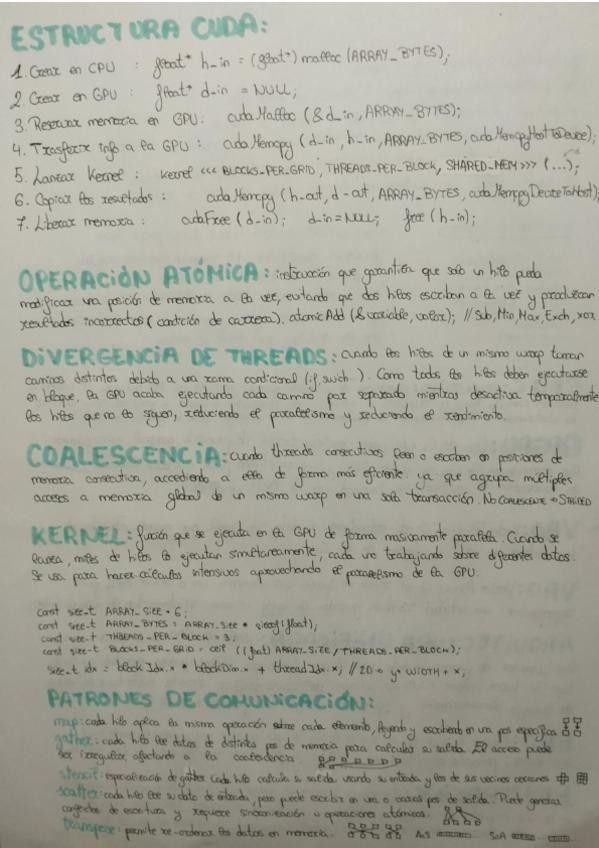 ESTRUCTURA CUDA:
1. Crear en CPU : float* h_in = (float*) malloc (ARRAY_BYTES);
2. Crear en GPU : float* d_in = NULL;
3. Reservar memoria en GPU: cudaMalloc (&d_in, ARRAY_BYTES);
4. Trasferir info a la GPU : cudaMemcpy (d_in, h_in, ARRAY_BYTES, cudaMemcpyHostToDevice);
5. Lanzar Kernel : kernel <<< BLOCKS_PER_GRID, THREADS_PER_BLOCK, SHARED_MEM >>> (...);
6. Copiar los resultados : cudaMemcpy (h_out, d_out, ARRAY_BYTES, cudaMemcpyDeviceToHost);
7. Liberar memoria : cudaFree (d_in); d_in = NULL; free (h_in);
OPERACIÓN ATÓMICA: instrucción que garantiza que solo un hilo pueda
modificar una posición de memoria a la vez, evitando que dos hilos escriban a la vez y produzcan
resultados incorrectos (condición de carrera). atomicAdd (&variable, valor); // Sub, Min, Max, Exch, xor
DIVERGENCIA DE THREADS: Cuando los hilos de un mismo warp toman
caminos distintos debido a una rama condicional (if, swich). Como todos los hilos deben ejecutarse
en bloque, la GPU acaba ejecutando cada camino por separado mientras desactiva temporalmente
los hilos que no lo siguen, reduciendo el paralelismo y reduciendo el rendimiento.
COALESCENCIA: Cuando threads consecutivos leen o escriben en posiciones de
memoria consecutiva, accediendo a ella de forma más eficiente. ya que agrupa múltiples
accesos a memoria global de un mismo warp en una sola transacción. NO COALESCENTE → STRIDED
KERNEL: función que se ejecuta en la GPU de forma masivamente paralela. Cuando se
lanza, miles de hilos lo ejecutan simultaneamente, cada uno trabajando sobre diferentes datos.
Se usa para hacer cálculos intensivos aprovechando el paralelismo de la GPU.
const size_t ARRAY_SIZE = 6;
const size_t ARRAY_BYTES = ARRAY_SIZE * sizeof(float);
const size_t THREADS_PER_BLOCK = 3;
const size_t BLOCKS_PER_GRID = ceil ((float) ARRAY_SIZE / THREADS_PER_BLOCK);
size_t idx = blockIdx.x * blockDim.x + threadIdx.x; // 2D → y * WIDTH + x;
PATRONES DE COMUNICACIÓN:
map: cada hilo aplica la misma operación sobre cada elemento, leyendo y escribiendo en una pos específica
gather: cada hilo lee datos de distintas pos de memoria para calcular su salida. El acceso puede
ser irregular, afectando a la coalescencia
stencil: especialización de gather. Cada hilo calcula su salida usando su entrada y los de sus vecinos cercanos
scatter: cada hilo lee su dato de entrada, pero puede escribir en una o varias pos de salida. Puede generar
conflictos de escritura y requiere sincronización u operaciones atómicas.
transpose: permite re-ordenar los datos en memoria. AoS SoA